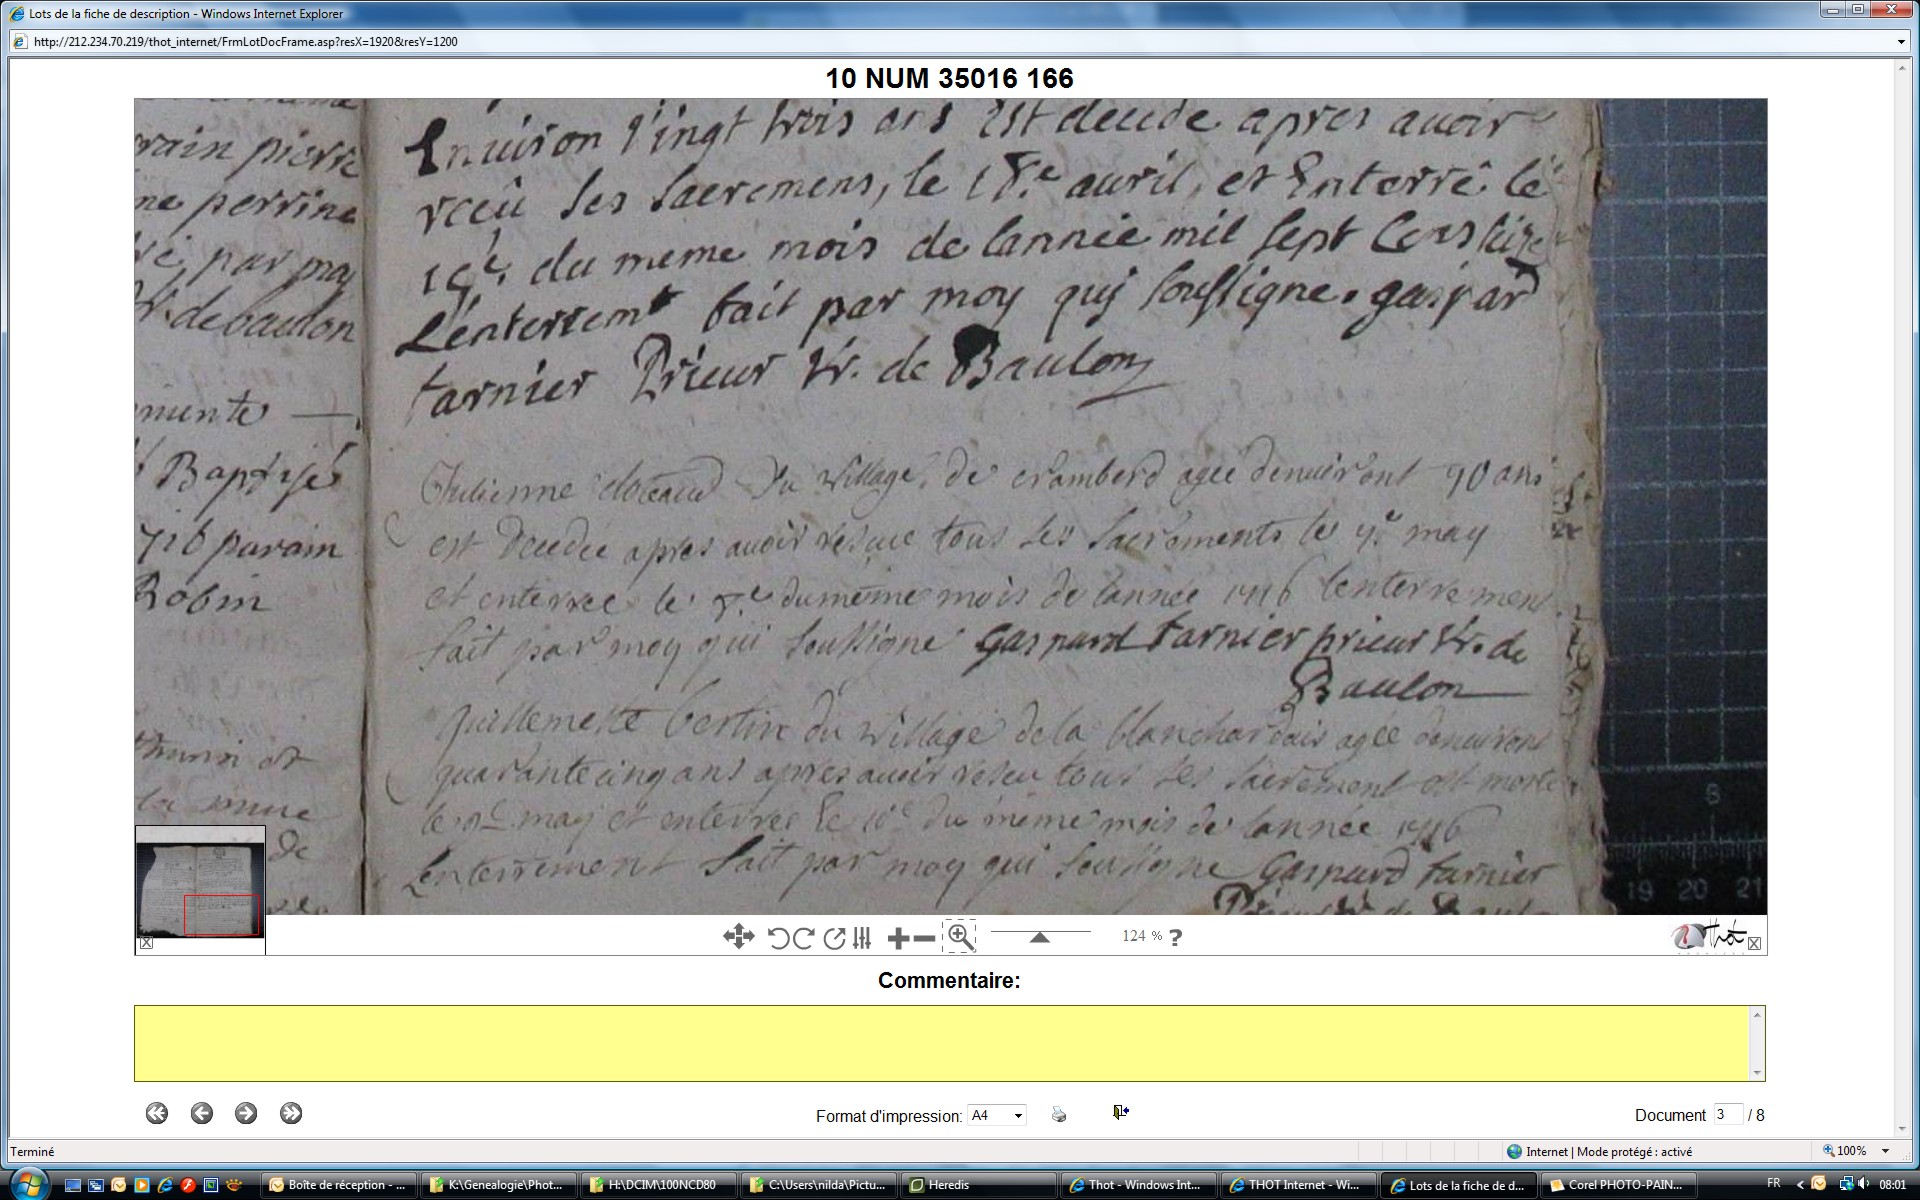 Lots de la fiche de description - Windows Internet Explorer
http://212.234.70.219/thot_internet/FrmLotDocFrame.asp?resX=1920&resY=1200
10 NUM 35016 166
rain pierre
ne perrine
par moy
Vr. de baulon
Baptisé
716 parain
Robin
de
Environ Vingt trois ans Est decede apres avoir
rceü ses sacremens, le 18.e avril, et Enterré le
19e. du meme mois de lannée mil sept Cens seize
L'enterremt fait par moy qui soussigne. gaspard
tarnier Prieur Vr. de Baulon
Julienne du village de cramberd agée denviront 90 ans
est decedée apres avoir resçue tous ses sacrements le 7e may
et enterree le 8.e du meme mois de lannée 1716 lenterrement
fait par moy qui soussigne Gaspard tarnier prieur Vr. de
Baulon
guillemette bertin du village de la blanchardais agée denviront
quarante cinq ans apres avoir resçu tous ses sacrement est morte
le may et enterree le 10e du meme mois de lannée 1716
Lenterrement fait par moy qui soussigne Gaspard tarnier
8
19 20 21
124 %
?
Thot
Commentaire:
Format d'impression: A4
Document 3 / 8
Terminé
Internet | Mode protégé : activé
100%
Boîte de réception - ...
K:\Genealogie\Phot...
H:\DCIM\100NCD80
C:\Users\nilda\Pictu...
Heredis
Thot - Windows Int...
THOT Internet - Wi...
Lots de la fiche de d...
Corel PHOTO-PAIN...
FR
08:01